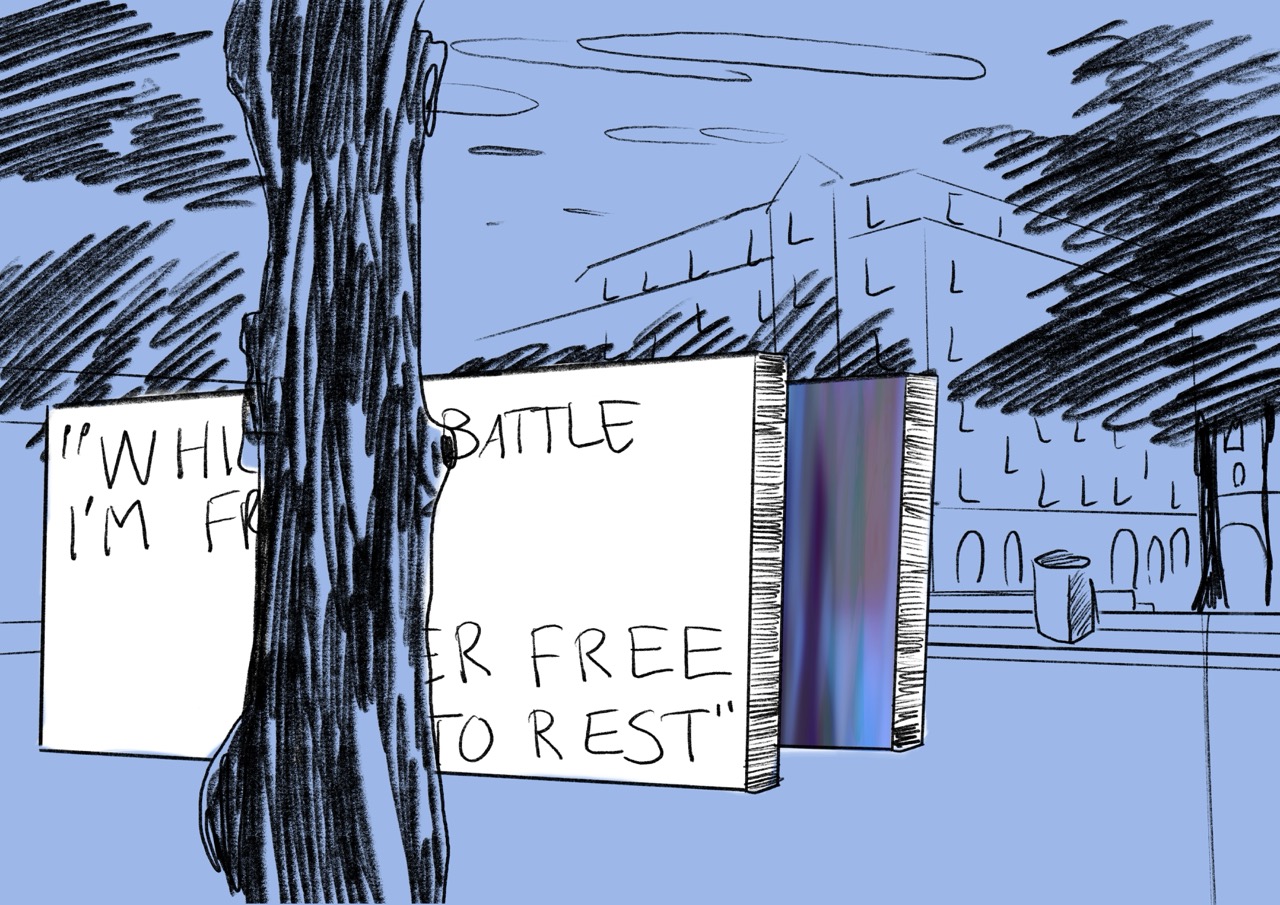 "WHI BATTLE
I'M FR
ER FREE
TO REST"